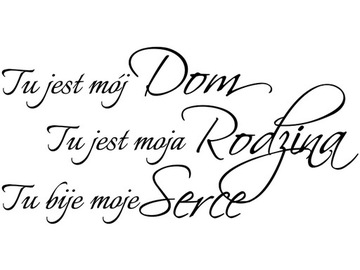 Tu jest mój Dom
Tu jest moja Rodzina
Tu bije moje Serce